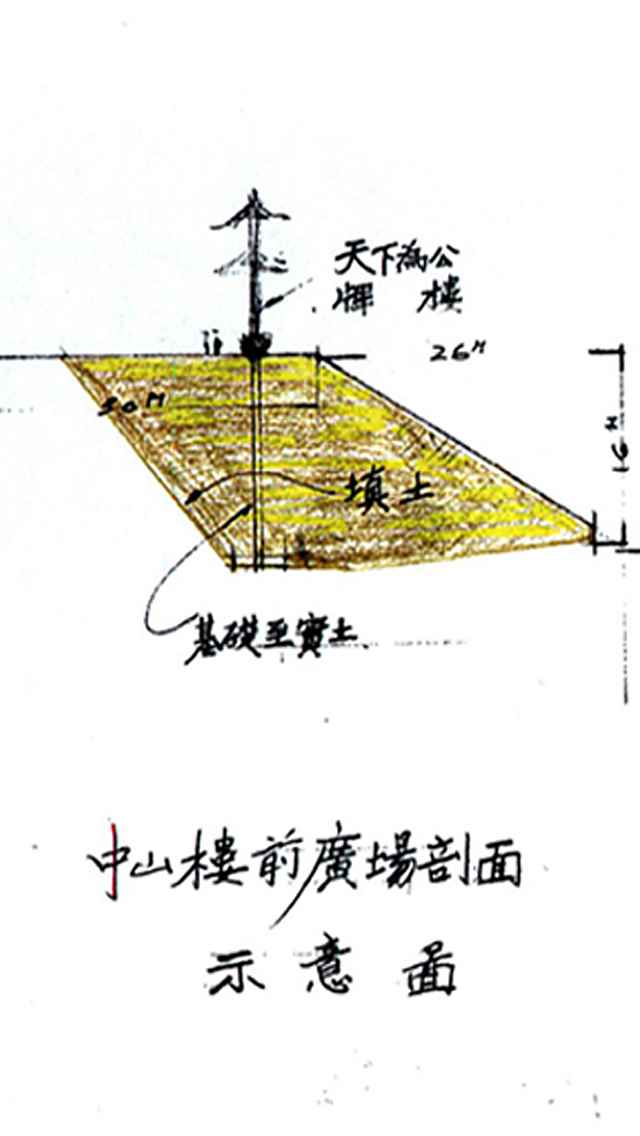 天下為公
牌 樓
26M
30M
16M
填土
基礎至實土
中山樓前廣場剖面
示意圖